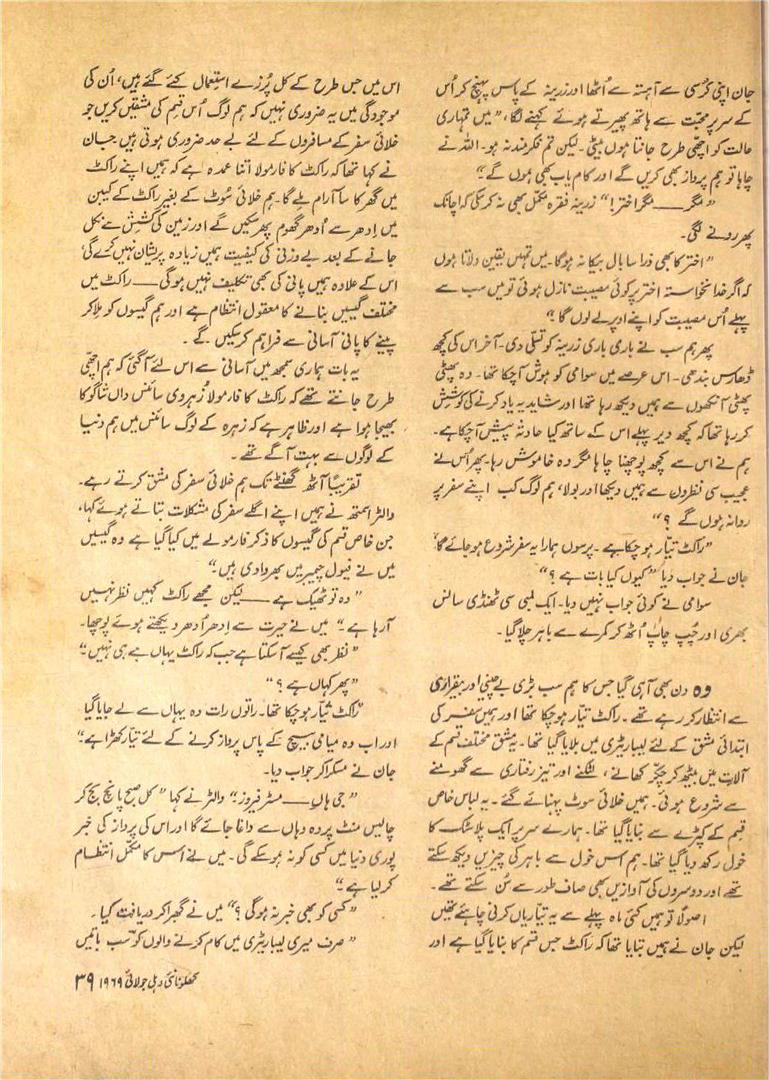 جان اپنی کُرسی سے آہستہ سے اُٹھا اور زرینہ کے پاس پہنچ کر اُس
کے سر پر محبّت سے ہاتھ پھیرتے ہوئے کہنے لگا، ”میں تمہاری
حالت کو اچھّی طرح جانتا ہوں بیٹی۔ لیکن تم فکرمند نہ ہو۔ اللہ نے
چاہا تو ہم پرواز بھی کریں گے اور کامیاب بھی ہوں گے“
”مگر —— مگر اختر!“ زرینہ فقرہ مکمّل بھی نہ کر سکی کہ اچانک
پھر رونے لگی۔
”اختر کا بھی ذرا سا بال بیکا نہ ہوگا۔ میں تمہیں یقین دلاتا ہوں
کہ اگر خدانخواستہ اختر پر کوئی مصیبت نازل ہوئی تو میں سب سے
پہلے اُس مصیبت کو اپنے اوپر لے لوں گا؟“
پھر ہم سب نے باری باری زرینہ کو تسلّی دی۔ آخر اس کی کچھ
ڈھارس بندھی۔ اس عرصے میں سوامی کو ہوش آ چکا تھا۔ وہ پھٹی
پھٹی آنکھوں سے ہمیں دیکھ رہا تھا اور شاید یہ یاد کرنے کی کوشش
کر رہا تھا کہ کچھ دیر پہلے اس کے ساتھ کیا حادثہ پیش آ چکا ہے۔
ہم نے اس سے کچھ پوچھنا چاہا مگر وہ خاموش رہا۔ پھر اُس نے
عجیب سی نظروں سے ہمیں دیکھا اور بولا، ہم لوگ کب اپنے سفر پر
روانہ ہوں گے ؟“
”راکٹ تیّار ہو چکا ہے۔ پرسوں ہمارا یہ سفر شروع ہو جائے گا“
جان نے جواب دیا ”کیوں کیا بات ہے ؟“
سوامی نے کوئی جواب نہیں دیا۔ ایک لمبی سی ٹھنڈی سانس
بھری اور چُپ چاپ اُٹھ کر کمرے سے باہر چلا گیا۔
وہ دن بھی آ ہی گیا جس کا ہم سب بڑی بے چینی اور بیقراری
سے انتظار کر رہے تھے۔ راکٹ تیّار ہو چکا تھا اور ہمیں سفر کی
ابتدائی مشق کے لئے لیباریٹری میں بلایا گیا تھا۔ یہ مشق مختلف قسم کے
آلات میں بیٹھ کر چکّر کھانے، لٹکنے اور تیز رفتاری سے گھومنے
سے شروع ہوئی۔ ہمیں خلائی سوٹ پہنائے گئے۔ یہ لباس خاص
قسم کے کپڑے سے بنایا گیا تھا۔ ہمارے سر پر ایک پلاسٹک کا
خول رکھ دیا گیا تھا۔ ہم اس خول سے باہر کی چیزیں دیکھ سکتے
تھے اور دوسروں کی آوازیں بھی صاف طور سے سُن سکتے تھے۔
اصولاً تو ہمیں کئی ماہ پہلے سے یہ تیّاریاں کرنی چاہئے تھیں
لیکن جان نے ہمیں بتایا تھا کہ راکٹ جس قسم کا بنایا گیا ہے اور
اس میں جس طرح کے کل پُرزے استعمال کئے گئے ہیں، اُن کی
موجودگی میں یہ ضروری نہیں کہ ہم لوگ اُس قسم کی مشقیں کریں جو
خلائی سفر کے مسافروں کے لئے بے حد ضروری ہوتی ہیں جان
نے کہا تھا کہ راکٹ کا فارمولا اتنا عمدہ ہے کہ ہمیں اپنے راکٹ
میں گھر کا سا آرام ملے گا۔ ہم خلائی سُوٹ کے بغیر راکٹ کے کیبن
میں اِدھر سے اُدھر گھوم پھر سکیں گے اور زمین کی کشش سے نکل
جانے کے بعد بے وزنی کی کیفیت ہمیں زیادہ پریشان نہیں کرے گی
اس کے علاوہ ہمیں پانی کی بھی تکلیف نہیں ہوگی —— راکٹ میں
مختلف گیسیں بنانے کا معقول انتظام ہے اور ہم گیسوں کو ملا کر
پینے کا پانی آسانی سے فراہم کر سکیں گے۔
یہ بات ہماری سمجھ میں آسانی سے اس لئے آ گئی کہ ہم اچھّی
طرح جانتے تھے کہ راکٹ کا فارمولا زہروی سائنس داں شاگو کا
بھیجا ہوا ہے اور ظاہر ہے کہ زہرہ کے لوگ سائنس میں ہم دنیا
کے لوگوں سے بہت آگے تھے۔
تقریبًا آٹھ گھنٹے تک ہم خلائی سفر کی مشق کرتے رہے۔
والٹر اسمتھ نے ہمیں اپنے اگلے سفر کی مشکلات بتاتے ہوئے کہا،
جن خاص قسم کی گیسوں کا ذکر فارمولے میں کیا گیا ہے وہ گیسیں
میں نے فیول چیمبر میں بھروا دی ہیں۔“
”وہ تو ٹھیک ہے —— لیکن مجھے راکٹ کہیں نظر نہیں
آ رہا ہے۔“ میں نے حیرت سے اِدھر اُدھر دیکھتے ہوئے پوچھا۔
”نظر بھی کیسے آ سکتا ہے جب کہ راکٹ یہاں ہے ہی نہیں۔“
”پھر کہاں ہے ؟“
”راکٹ تیّار ہو چکا تھا۔ راتوں رات وہ یہاں سے لے جایا گیا
اور اب وہ میامی بیچ کے پاس پرواز کرنے کے لئے تیّار کھڑا ہے“
جان نے مسکرا کر جواب دیا۔
”جی ہاں —— مسٹر فیروز۔“ والٹر نے کہا ”کل صبح پانچ بج کر
چالیس منٹ پر وہ وہاں سے داغا جائے گا اور اس کی پرواز کی خبر
پوری دنیا میں کسی کو نہ ہو سکے گی۔ میں نے اس کا مکمّل انتظام
کر لیا ہے۔“
”کسی کو بھی خبر نہ ہوگی ؟“ میں نے گھبرا کر دریافت کیا۔
”صرف میری لیباریٹری میں کام کرنے والوں کو سب باتیں
کھلونا نئی دہلی جولائی ۱۹۶۹ ۳۹